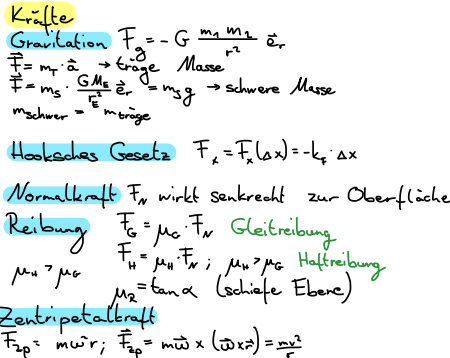 Kräfte
Gravitation F_g = - G m₁ m₂ / r² e⃗_r
F⃗ = m_T · a⃗ → träge Masse
F⃗ = m_S · G M_E / r_E² e⃗_r = m_S g → schwere Masse
m_schwer = m_träge
Hooksches Gesetz F_x = F_x(Δx) = -k_F · Δx
Normalkraft F_N wirkt senkrecht zur Oberfläche
Reibung F_G = μ_G · F_N Gleitreibung
μ_H > μ_G F_H = μ_H · F_N ; μ_H > μ_G Haftreibung
μ_R = tan α (schiefe Ebene)
Zentripetalkraft
F⃗_zp = mω²r ; F⃗_zp = mω⃗ × (ω⃗ × r⃗) = mv² / r